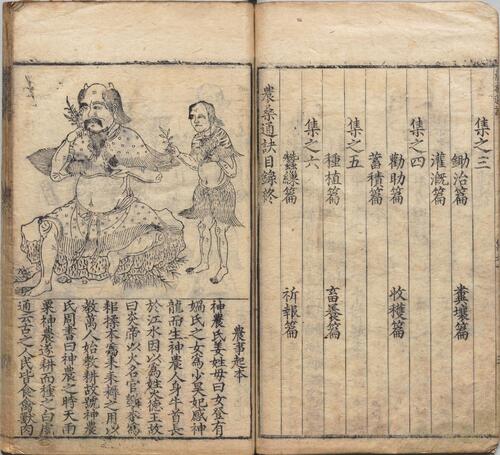 集之三
鋤治篇 糞壤篇
灌溉篇
集之四
勸助篇 收穫篇
蓄積篇
集之五
種植篇 畜養篇
集之六
蠶繅篇 祈報篇
農桑通訣目錄終
農事起本
神農氏姜姓母曰女登有
媧氏之女為少昊妃感神
龍而生神農人身牛首長
於江水因以為姓火德王故
曰炎帝以火名官斲木為
耜揉木為耒耒耨之用以
教萬人始教耕故號神農
氏周書曰神農之時天雨
粟神農遂耕而種之白虎
通云古之人民皆食禽獸肉